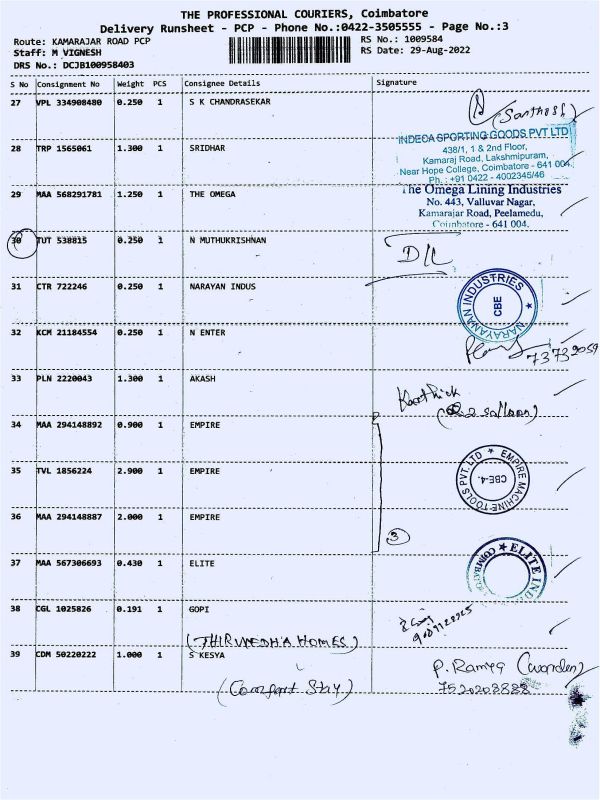 THE PROFESSIONAL COURIERS, Coimbatore
Delivery Runsheet - PCP - Phone No.:0422-3505555 - Page No.:3
Route: KAMARAJAR ROAD PCP RS No.: 1009584
Staff: M VIGNESH RS Date: 29-Aug-2022
DRS No.: DCJB100958403
S No Consignment No Weight PCS Consignee Details Signature
27 VPL 334908480 0.250 1 S K CHANDRASEKAR
(Santhosh)
INDECA SPORTING GOODS PVT LTD
28 TRP 1565061 1.300 1 SRIDHAR
438/1, 1 & 2nd Floor,
Kamaraj Road, Lakshmipuram,
Near Hope College, Coimbatore - 641 004.
Ph.: +91 0422 - 4002345/46
29 MAA 568291781 1.250 1 THE OMEGA
The Omega Lining Industries
No. 443, Valluvar Nagar,
Kamarajar Road, Peelamedu,
Coimbatore - 641 004.
30 TUT 538815 0.250 1 N MUTHUKRISHNAN
D/L
31 CTR 722246 0.250 1 NARAYAN INDUS
NARAYANAN INDUSTRIES
CBE
32 KCM 21184554 0.250 1 N ENTER
33 PLN 2220043 1.300 1 AKASH
Karthick
34 MAA 294148892 0.900 1 EMPIRE
35 TVL 1856224 2.900 1 EMPIRE
EMPIRE MACHINE TOOLS PVT. LTD
CBE-4.
36 MAA 294148887 2.000 1 EMPIRE
3
37 MAA 567306693 0.430 1 ELITE
ELITE IND
38 CGL 1025826 0.191 1 GOPI
(THIRUMEDHA HOMES)
39 CDM 50220222 1.000 1 S KESYA
P. Ramya (warden)
(Comfort Stay)